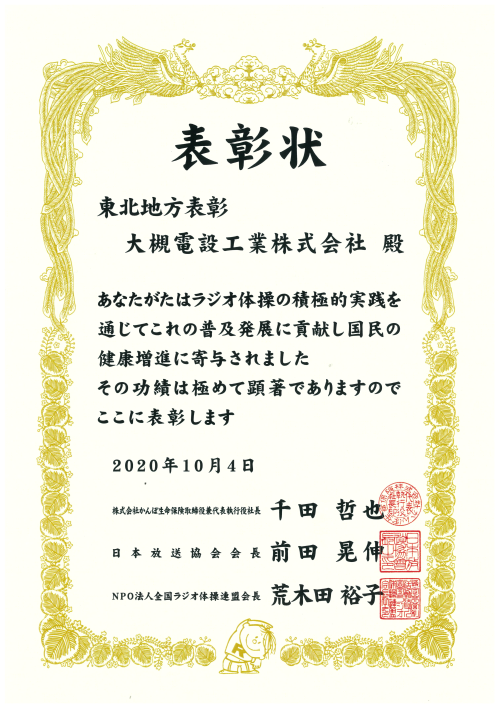 表彰状
東北地方表彰
大槻電設工業株式会社 殿
あなたがたはラジオ体操の積極的実践を
通じてこれの普及発展に貢献し国民の
健康増進に寄与されました
その功績は極めて顕著でありますので
ここに表彰します
2020年10月4日
株式会社かんぽ生命保険取締役兼代表執行役社長 千田 哲也
日本放送協会会長 前田 晃伸
NPO法人全国ラジオ体操連盟会長 荒木田 裕子